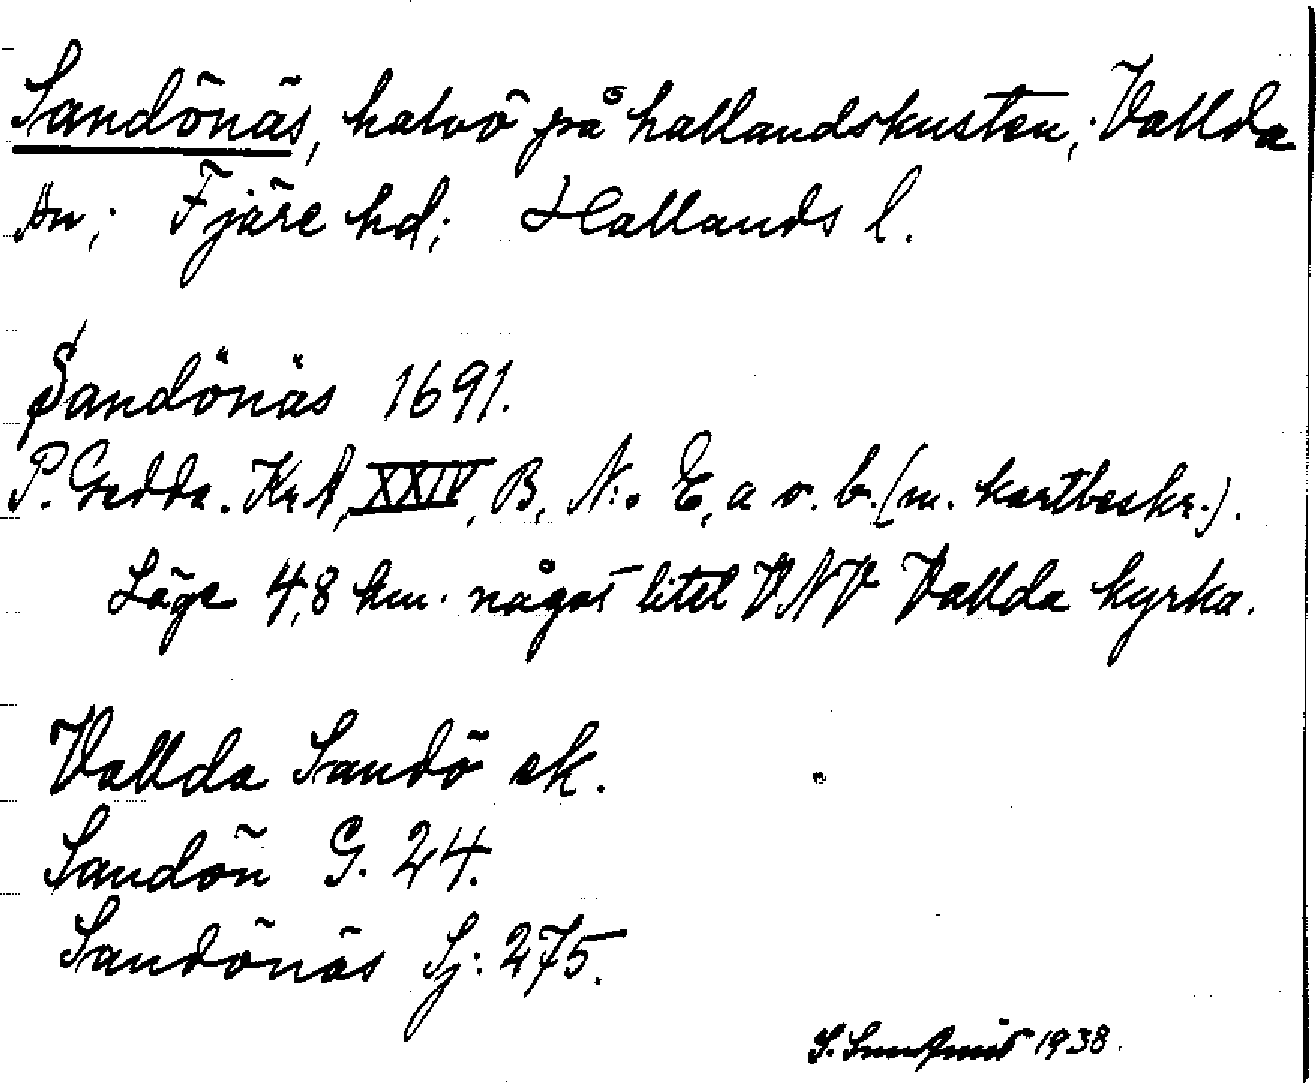 Sandönäs, halvö på hallandskusten; Vallda
sn; Fjäre hd; Hallands l.
Sandönäs 1691.
P. Gedda. Kr A, XXIV, B, N:o E, a o. b. (m. kartbeskr.).
Läge 4,8 km. något litet VNV Vallda kyrka.
Vallda Sandö ek.
Sandön G. 24.
Sandönäs Sj: 275.
S. 1938.